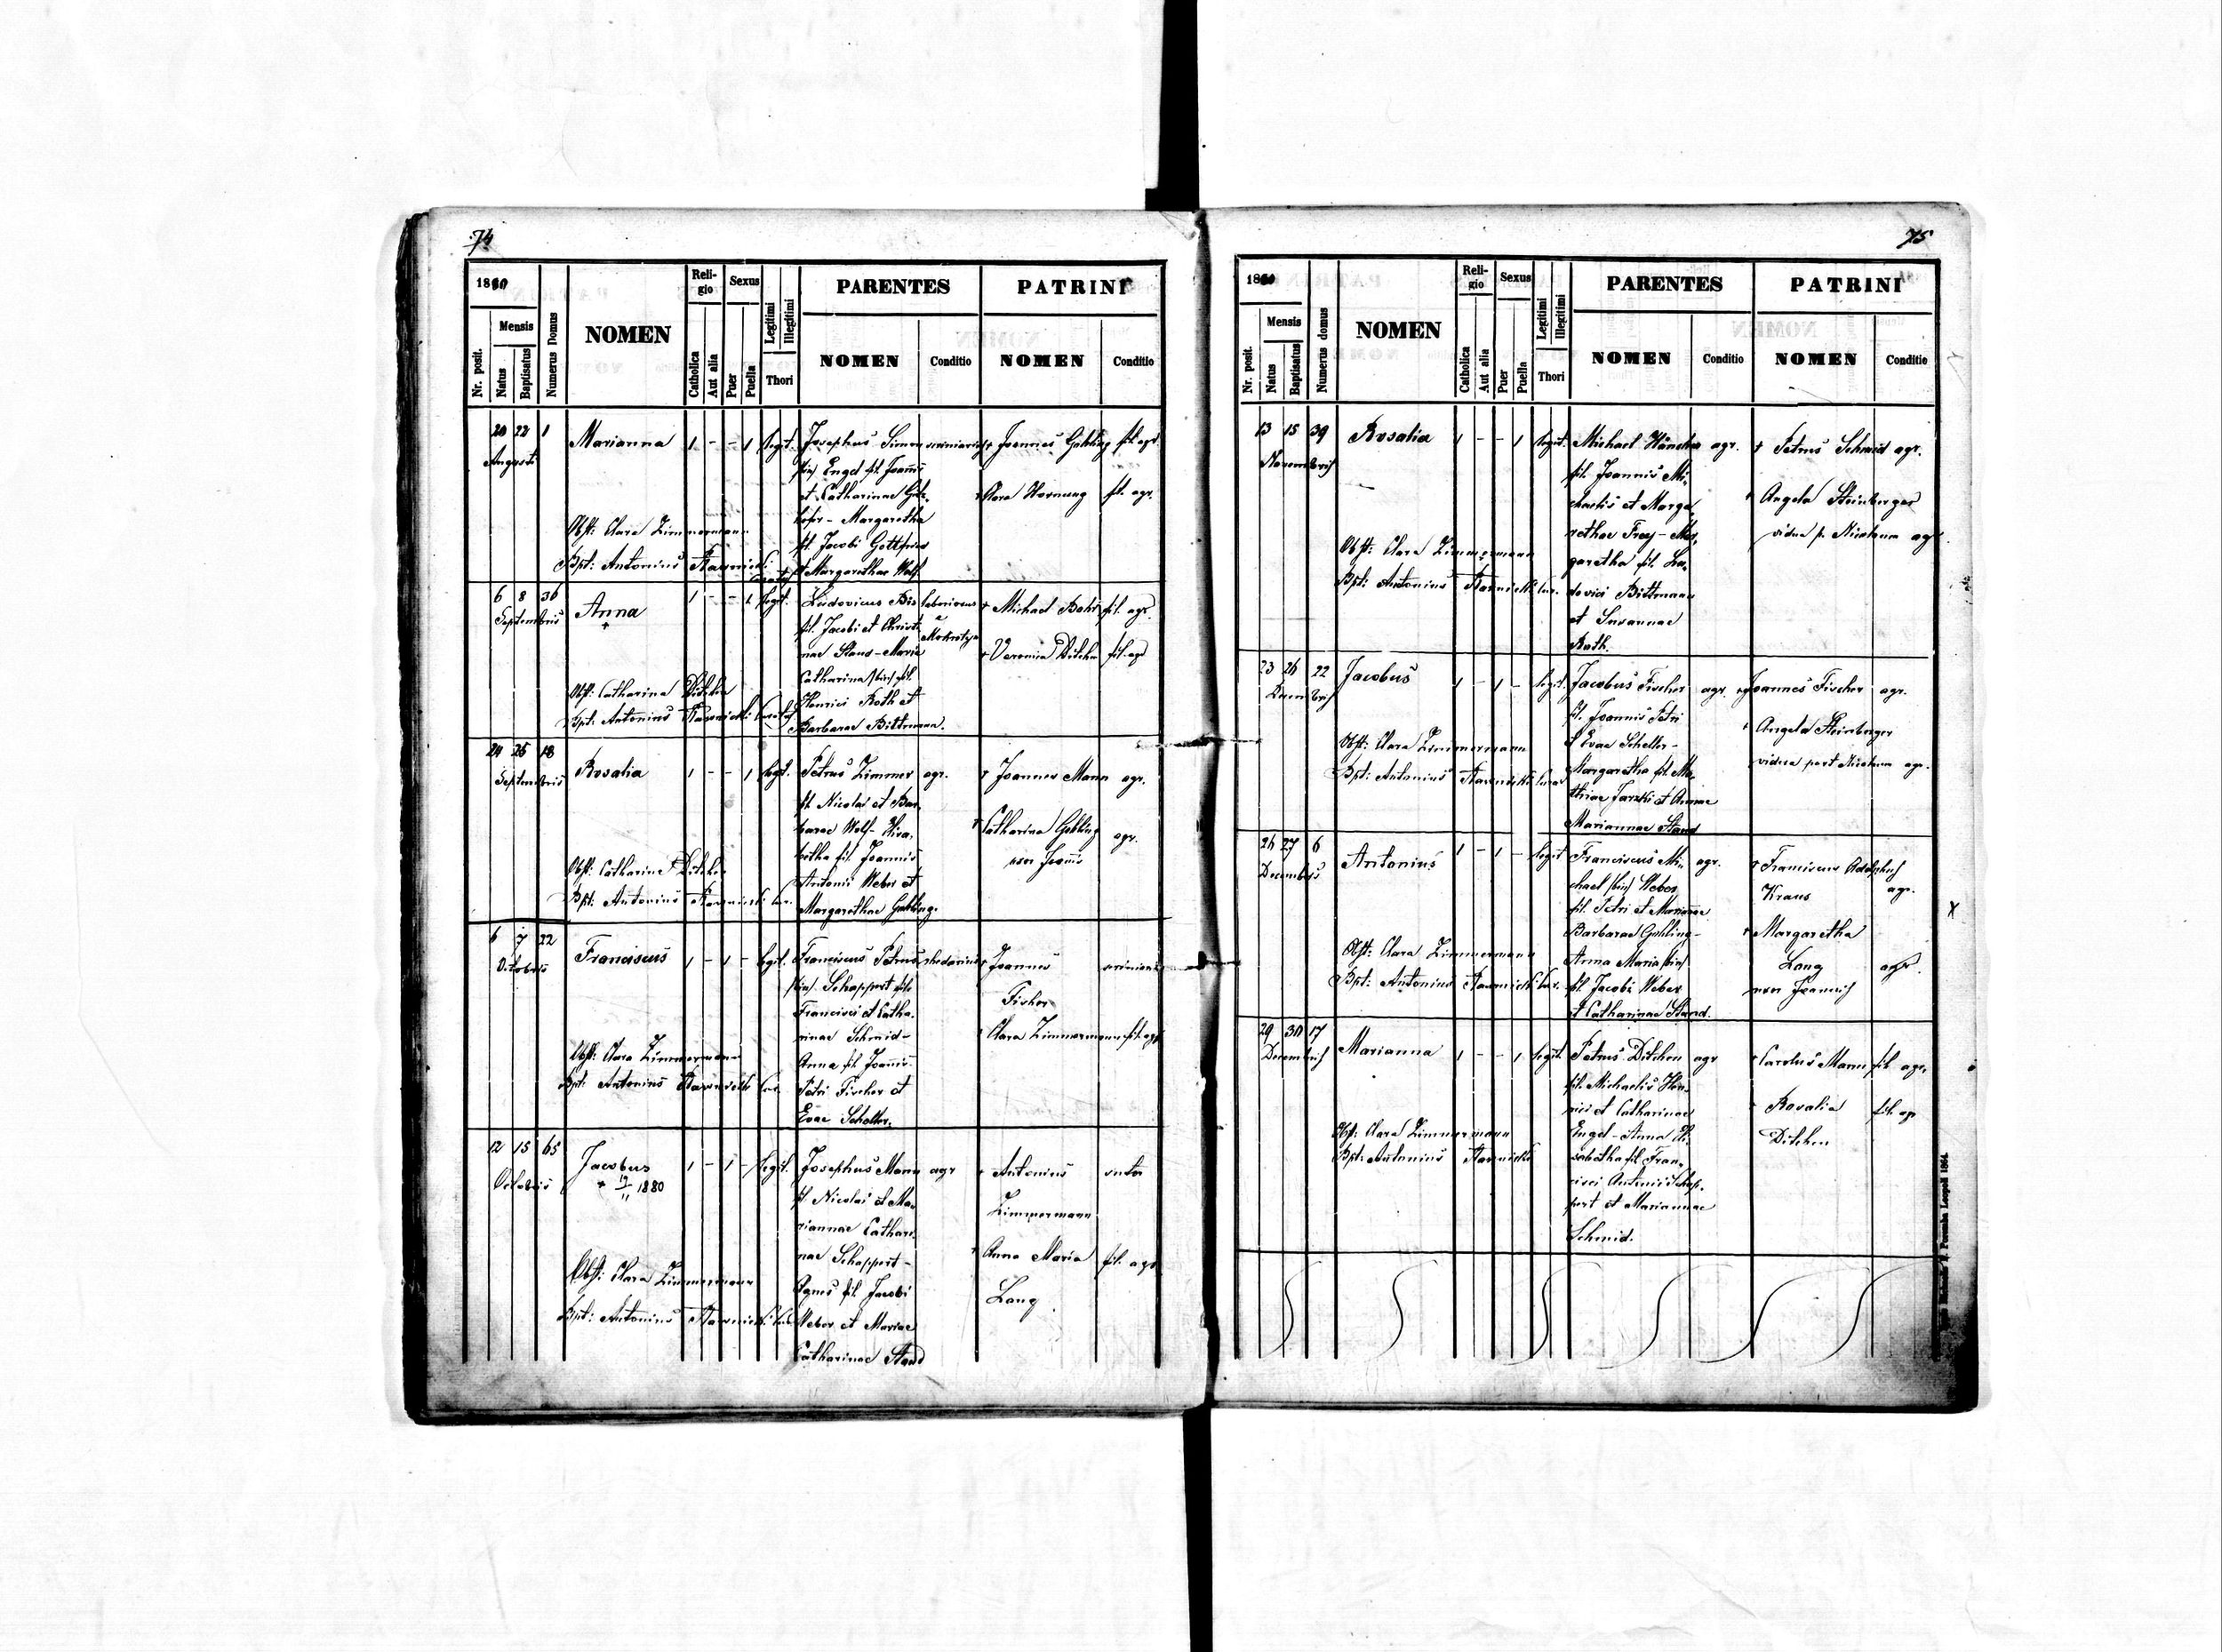 74
1880
Nr. posit.
Mensis
Natus
Baptisatus
Numerus Domus
NOMEN
Reli-
gio
Catholica
Aut alia
Sexus
Puer
Puella
Legitimi
Illegitimi
Thori
PARENTES
NOMEN
Conditio
PATRINI
NOMEN
Conditio
20 22 1
Augusti
Marianna
1 - - 1 legit.
Josephus Simon
(bin) Engel fil. Joannis
et Catharinae
Margaretha
fil. Jacobi Gottfried
et Margarethae Wolf
+ Joannes Gebling fil. agr.
+ Clara Hornung fil. agr.
Obst: Clara Zimmermann
Bpt: Antonius
6 8 36
Septembris
Anna
+
1 - - 1 legit.
Ludovicus
fil. Jacobi et Christi-
nae Stand - Maria
Catharina (bin) fil.
Henrici Roth et
Barbarae Bittmann.
+ Michael fil. agr.
+ Veronica Ditchen fil. agr
Obst: Catharina Ditchen
Bpt: Antonius
24 25 18
Septembris
Rosalia
1 - - 1 legit.
Petrus Zimmer agr.
fil. Nicolai et Bar-
barae Wolf - Elisa-
betha fil. Joannis
Antonii Weber et
Margarethae Gebling.
+ Joannes Mann agr.
+ Catharina Gebling agr.
uxor Joannis
Obst: Catharina Ditchen
Bpt: Antonius
6 7 22
Octobris
Franciscus
1 - 1 - legit.
Franciscus Petrus
(bin) Schappert fil.
Francisci et Catha-
rinae Schmid -
Anna fil. Joannis
Petri Fischer et
Evae Scheller.
+ Joannes
Fischer
+ Clara Zimmermann fil. agr
Obst: Clara Zimmermann
Bpt: Antonius
12 15 65
Octobris
Jacobus
+ 17/11 1880
1 - 1 - legit.
Josephus Mann agr
fil. Nicolai et Ma-
riannae Cathari-
nae Schappert -
Agnes fil. Jacobi
Weber et Mariae
Catharinae Stand
+ Antonius sutor
Zimmermann
+ Anna Maria fil. agr
Lang
Obst: Clara Zimmermann
Bpt: Antonius
75
1880
Nr. posit.
Mensis
Natus
Baptisatus
Numerus domus
NOMEN
Reli-
gio
Catholica
Aut alia
Sexus
Puer
Puella
Legitimi
Illegitimi
Thori
PARENTES
NOMEN
Conditio
PATRINI
NOMEN
Conditio
13 15 39
Novembris
Rosalia
1 - - 1 legit.
Michael agr.
fil. Joannis Mi-
chaelis et Marga-
rethae Frey - Mar-
garetha fil. Lu-
dovici Bittmann
et Susannae
Roth.
+ Petrus Schmid agr.
+ Angela Steinberger
vidua p. Nicolaum agr
Obst: Clara Zimmermann
Bpt: Antonius
23 26 22
Decembris
Jacobus
1 - 1 - legit.
Jacobus Fischer agr.
fil. Joannis Petri
et Evae Scheller -
Margaretha fil. Ma-
thiae et Annae
Mariannae Stand
+ Joannes Fischer agr.
+ Angela Steinberger
vidua post Nicolaum agr.
Obst: Clara Zimmermann
Bpt: Antonius
26 27 6
Decembris
Antonius
1 - 1 - legit
Franciscus Mi- agr.
chael (bin) Weber
fil. Petri et Mariannae
Barbarae Gebling -
Anna Maria (bin)
fil. Jacobi Weber
et Catharinae Stand.
+ Franciscus Adolphus
Kraus agr.
+ Margaretha
Lang agr.
uxor Joannis
Obst: Clara Zimmermann
Bpt: Antonius
29 30 17
Decembris
Marianna
1 - - 1 legit.
Petrus Ditchen agr
fil. Michaelis Hen-
rici et Catharinae
Engel - Anna Eli-
sabetha fil. Fran-
cisci Antonii Schap-
pert et Mariannae
Schmid.
+ Carolus Mann fil. agr.
+ Rosalia fil. agr
Ditchen
Obst: Clara Zimmermann
Bpt: Antonius